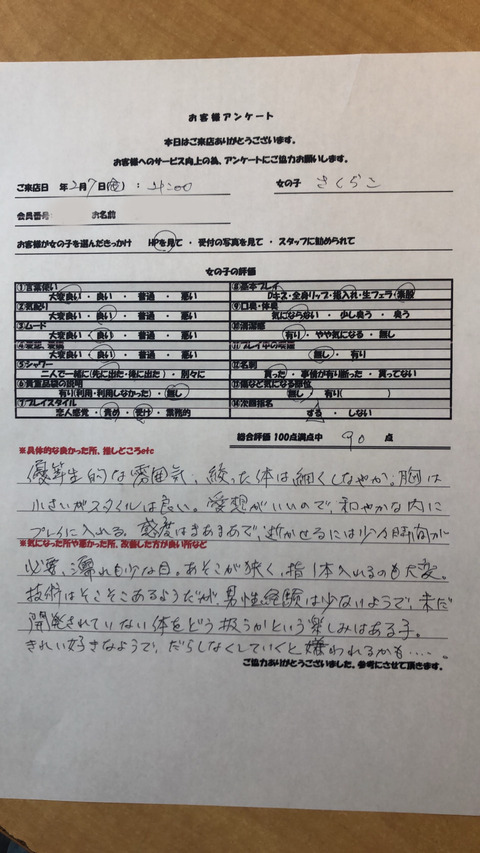 お客様アンケート
本日はご来店ありがとうございます。
お客様へのサービス向上の為、アンケートにご協力お願いします。
ご来店日 年2月7日(金): 女の子 さくらこ
会員番号: お名前
お客様が女の子を選んだきっかけ HPを見て・受付の写真を見て・スタッフに勧められて
女の子の評価
①言葉使い ⑧基本プレイ
大変良い・良い・普通・悪い Dキス・全身リップ・指入れ・生フェラ・素股
②気配り ⑨口臭・体臭
大変良い・良い・普通・悪い 気にならない・少し臭う・臭う
③ムード ⑩清潔感
大変良い・良い・普通・悪い 有り・やや気になる・無し
大変良い・良い・普通・悪い 無し・有り
⑤シャワー ⑫名刺
二人で一緒に(先に出た・後に出た)・別々に 貰った・事情が有り断った・貰ってない
⑥貴重品袋の説明 ⑬傷など気になる部位
有り(利用・利用しなかった)・無し 無し / 有り( )
⑦プレイスタイル ⑭次回指名
恋人感覚・責め・受け・業務的 する・しない
総合評価 100点満点中 90 点
※具体的な良かった所、推しどころetc
優等生的な雰囲気。絞った体は細くしなやか。胸は
小さいがスタイルは良い。愛想がいいので、和やかな内に
プレイに入れる。感度はまあまあで、逝かせるには少々時間が
※気になった所や悪かった所、改善した方が良い所など
必要、濡れも少な目。あそこが狭く、指1本入れるのも大変。
技術はそこそこあるようだが、男性経験は少ないようで、未だ
開発されていない体をどう扱うかという楽しみはある子。
きれい好きなようで、だらしなくしていくと嫌われるかも‥‥。
ご協力ありがとうございました。参考にさせて頂きます。